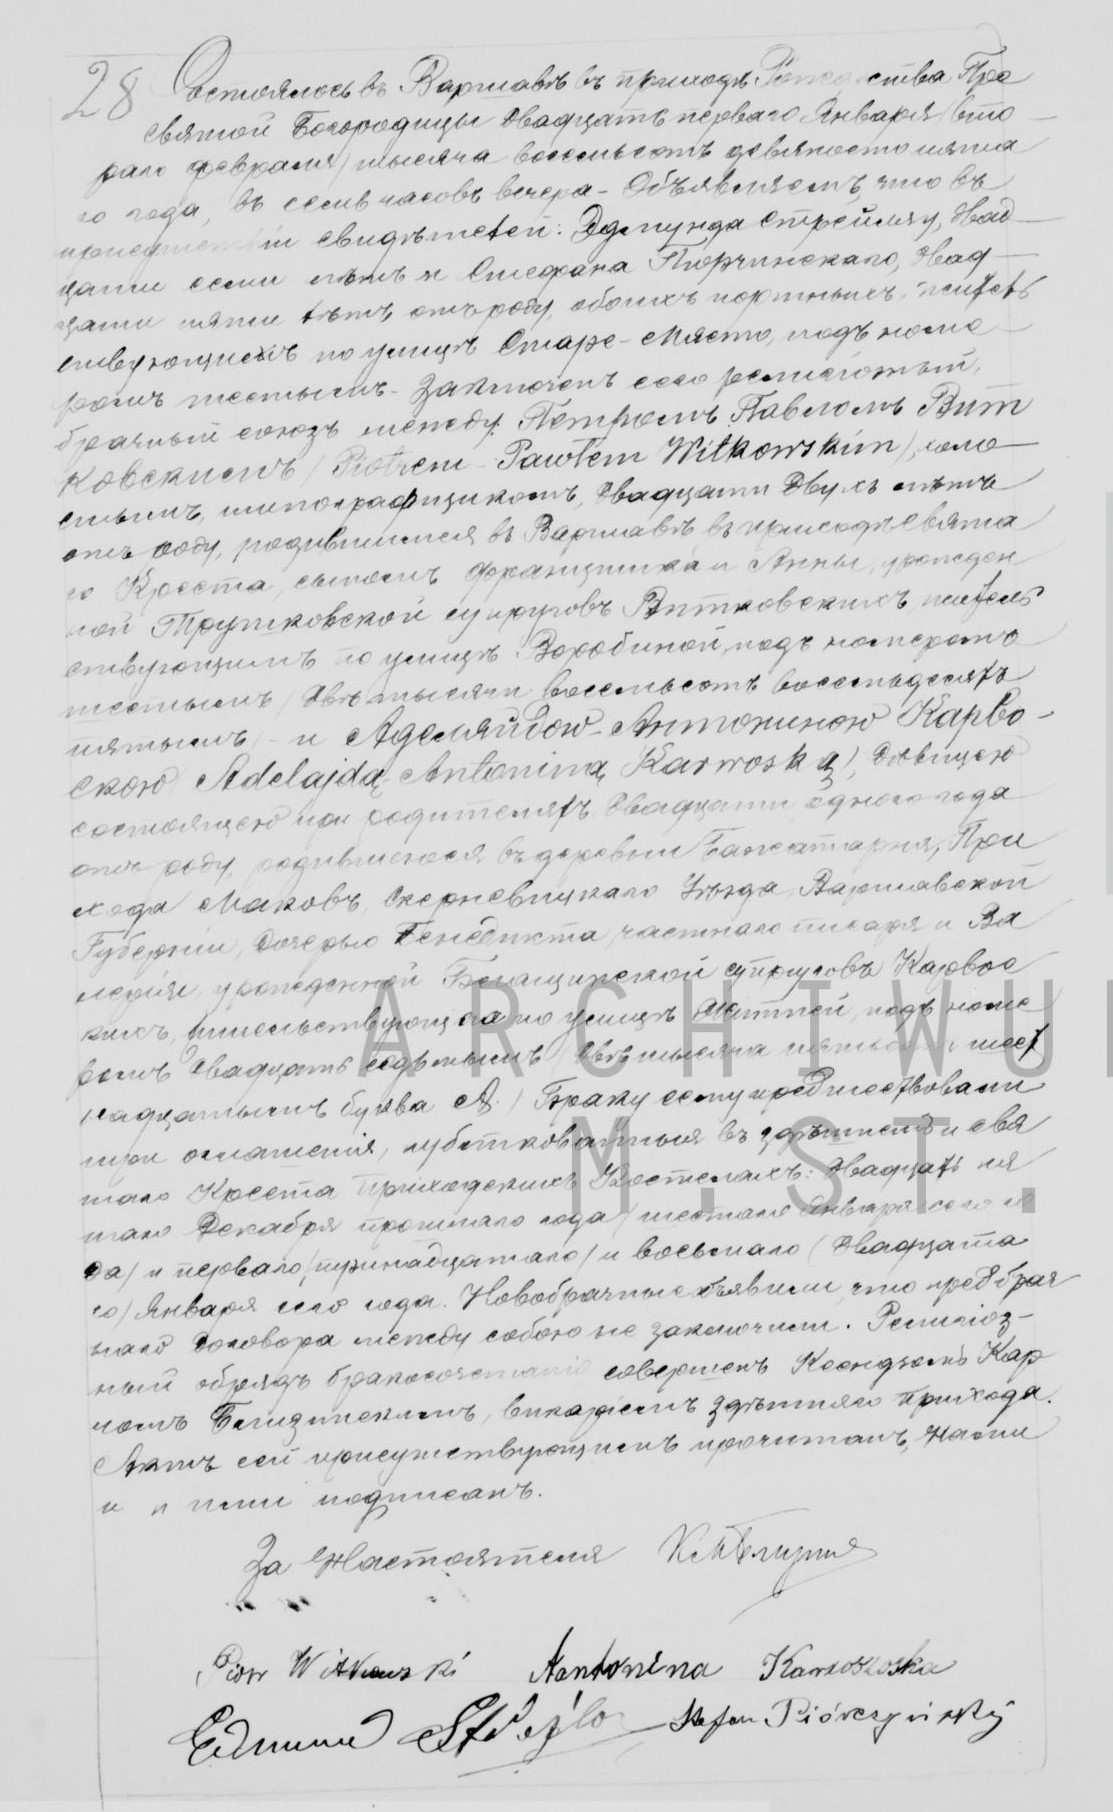 28 Состоялось въ Варшавѣ въ приходѣ Рождества Пре
святой Богородицы двадцать перваго Января /вто-
раго февраля/ тысяча восемьсотъ девяносто пята
го года, въ семь часовъ вечера - Объявляемъ, что въ
присутствіи свидѣтелей: Эдмунда Стрейлау, двад-
цати семи лѣтъ и Стефана Пюрчинскаго, двад-
цати пяти лѣтъ отъ роду, обоихъ портныхъ, житель
ствующихъ по улицѣ Старе-Място, подъ номе-
ромъ шестымъ - заключенъ сего религіозный,
брачный союзъ между: Петромъ Павломъ Вит
ковскимъ /Piotrem Pawłem Witkowskim/, холо-
стымъ, типографщикомъ, двадцати двухъ лѣтъ
отъ роду, родившимся въ Варшавѣ въ приходѣ Свята
го Креста, сыномъ Францишка и Анны, урожден
ной Трушковской супруговъ Витковскихъ, житель
ствующимъ по улицѣ Воробьиной, подъ номеромъ
шестымъ /двѣ тысячи восемьсотъ восемьдесятъ
пятымъ/ - и Аделяйдою-Антониною Карво-
скою /Adelajdą Antoniną Karwoską/, дѣвицею
состоящею при родителяхъ, двадцати одного года
отъ роду, родившеюся въ деревни Бажантарня, При
хода Маковъ, Скерневицкаго Уѣзда Варшавской
Губерніи, дочерью Бенедикта, частнаго писаря и Ва
леріи, урожденной супруговъ Карвос
кихъ, жительствующая по улицѣ подъ номе
ромъ двадцать седьмымъ /двѣ тысяча пятьсотъ шест
надцатымъ буква А./ Браку сему предшествовали
три оглашенія, публикованныя въ здѣшнемъ и свя
таго Креста Приходскихъ Костелахъ: двадцать пя
таго Декабря прошлаго года /шестаго Января сего го
да/ и перваго /тринадцатаго/ и восьмаго /двадцата
го/ Января сего года. Новобрачные объявили, что предбрач
наго договора между собою не заключили. Религіоз-
ный обрядъ бракосочетанія совершенъ Ксендзомъ Кар
ломъ Близинскимъ, викаріемъ здѣшняго прихода.
Актъ сей присутствующимъ прочитанъ, Нами
и ими подписанъ.
За Настоятеля
Piotr Witkowski Antonina Karwowska
Edmund Stefan Piórczyński
ARCHIWU
M. ST.